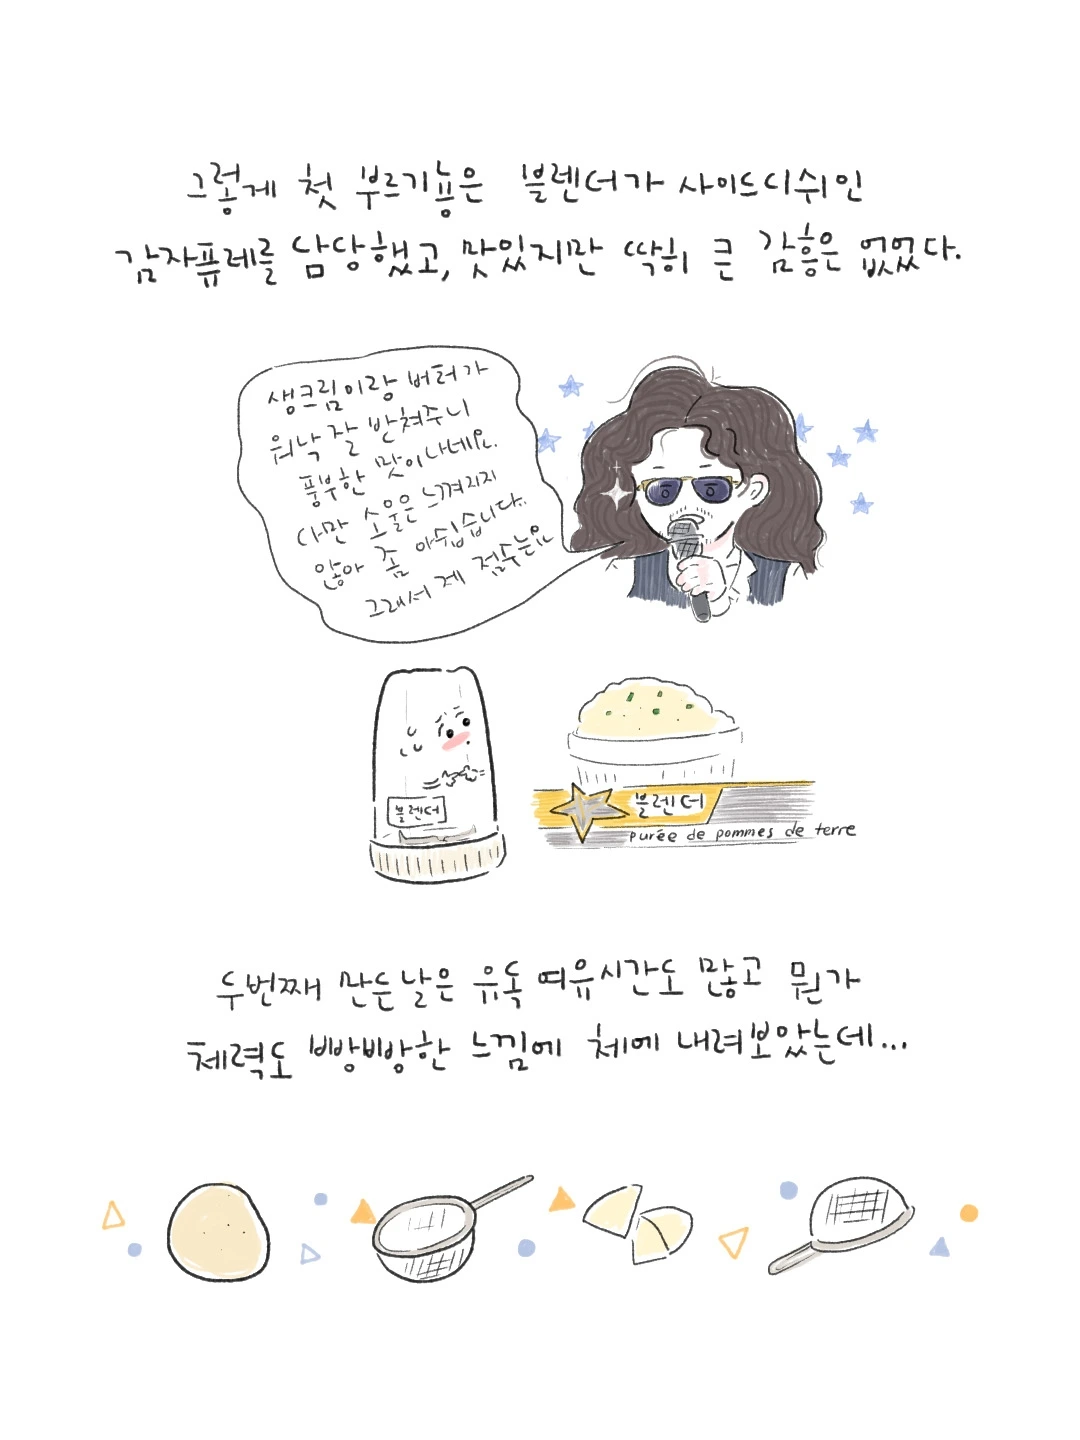 그렇게 첫 부르기뇽은 블렌더가 사이드디쉬인
감자퓨레를 담당했고, 맛있지만 딱히 큰 감흥은 없었다.
생크림이랑 버터가
워낙 잘 받쳐주니
풍부한 맛이 나네요.
다만 소울은 느껴지지
않아 좀 아쉽습니다..
그래서 제 점수는요
블렌더
블렌더
purée de pommes de terre
두번째 만든날은 유독 여유시간도 많고 뭔가
체력도 빵빵한 느낌에 체에 내려보았는데...